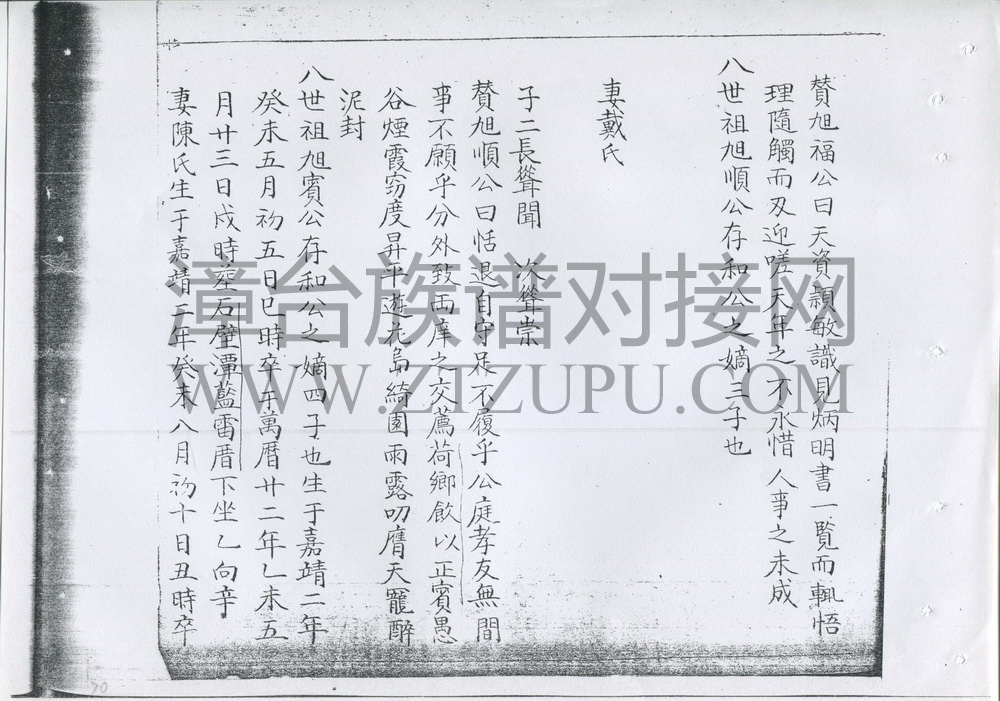 贊旭福公曰天資穎敏識見炳明書一覽而輒悟
理隨觸而刃迎嗟天年之不永惜人事之未成
八世祖旭順公存和公之嫡三子也
妻戴氏
子二長聳聞 次聳崇
贊旭順公曰恬退自守足不履乎公庭孝友無間
事不願乎分外致両庠之交薦荷鄉飲以正賓愚
谷煙霞窃度昇平遊花島綺園雨露叨膺天寵醉
泥封
八世祖旭賓公存和公之嫡四子也生于嘉靖二年
癸未五月初五日巳時卒于萬曆廿二年乙未五
月廿三日戌時塟石壁潭藍雷厝下坐乙向辛
妻陳氏生于嘉靖二年癸未八月初十日丑時卒
漳台族谱对接网
WWW.ZTZUPU.COM
70